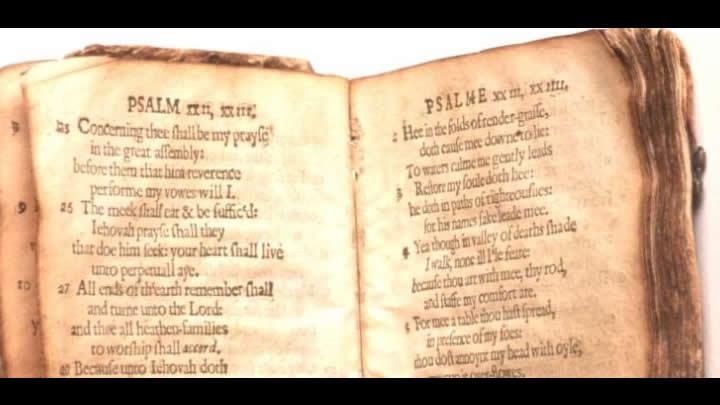 PSALM XXII, XXIII.
25 Concerning thee shall be my prayse
in the great assembly:
before them that him reverence
performe my vowes will I.
26 The meek shall eat & be suffic'd:
Iehovah prayse shall they
that doe him seek: your heart shall live
unto perpetuall aye.
27 All ends of th'earth remember shall
and turne unto the Lord:
and thee all heathen-families
to worship shall accord.
Because unto Iehovah doth
PSALME XXIII, XXIIII.
2 Hee in the folds of tender-grasse,
doth cause mee downe to lie:
To waters calme me gently leads
3 Restore my soule doth hee:
he doth in paths of righteousnes:
for his names sake leade mee.
4 Yea though in valley of deaths shade
I walk, none ill I'le feare:
because thou art with mee, thy rod,
and staffe my comfort are.
5 For mee a table thou hast spread,
in presence of my foes:
thou dost annoynt my head with oyle,
my cup it over-flowes.
9
10